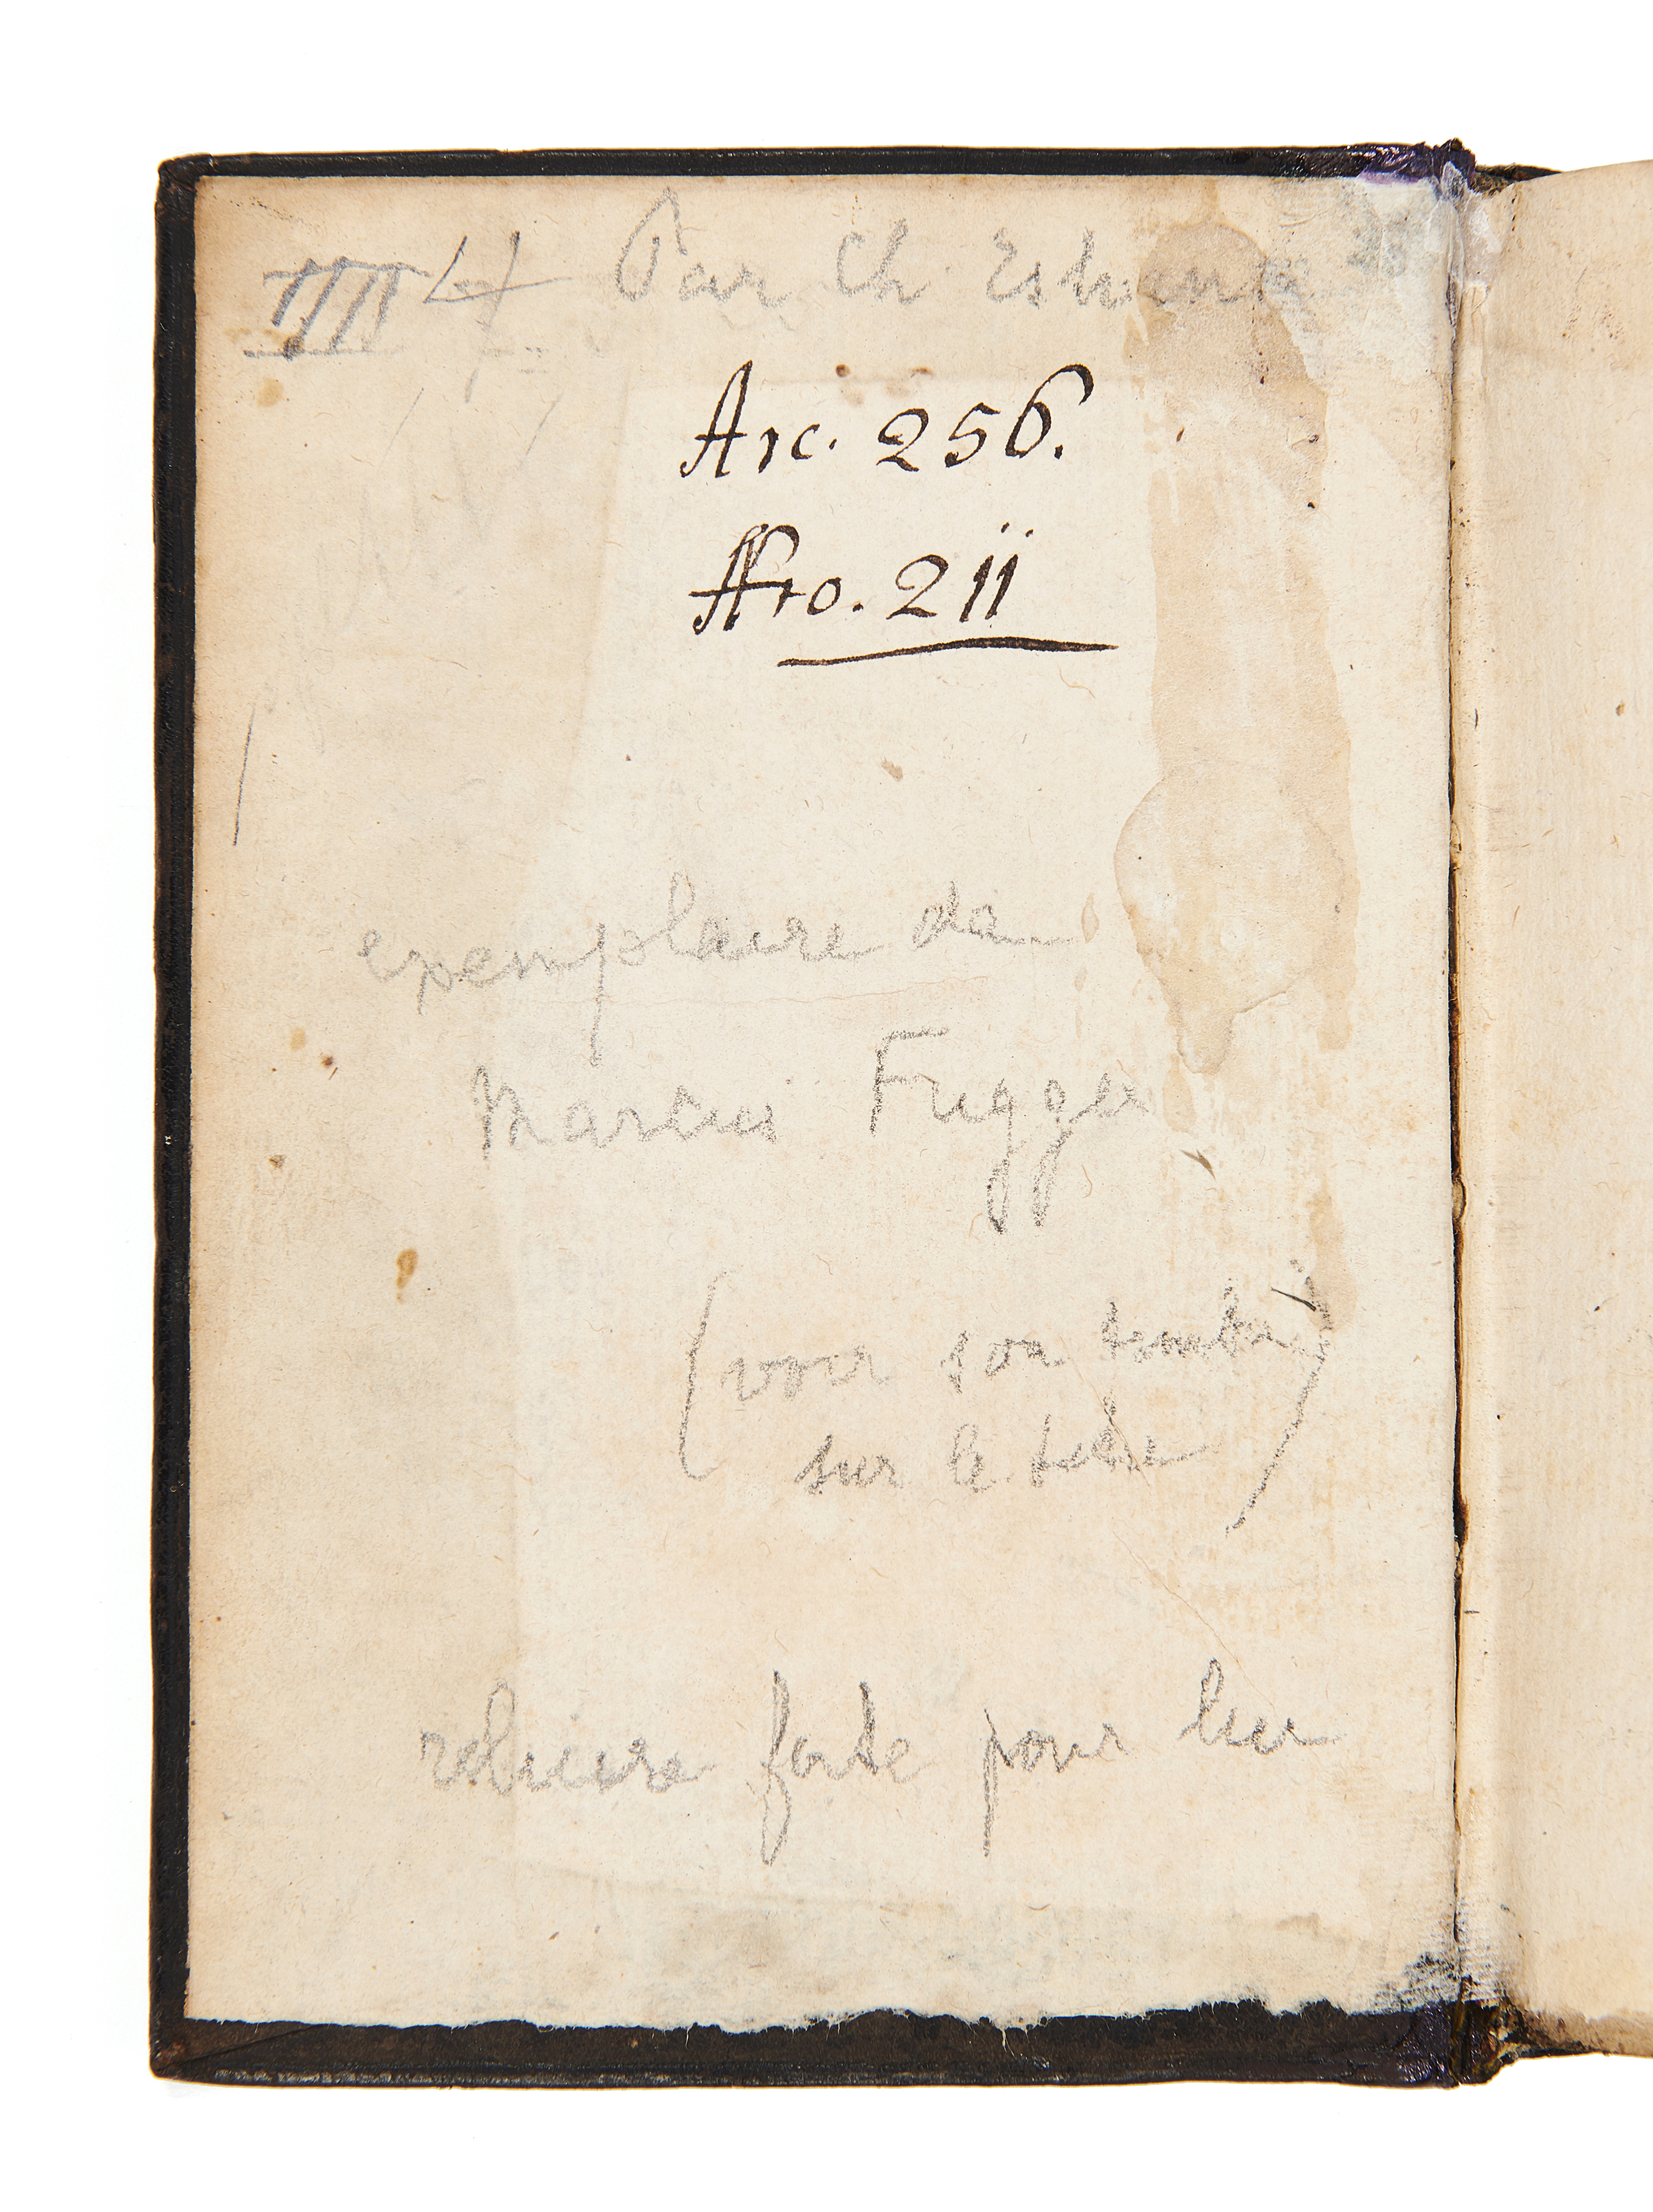 Par Ch Estienne
Arc. 256.
Nro. 211
exemplaire de
Marcus Fugger
(voir son timbre
sur le titre)
reliure faite pour lui